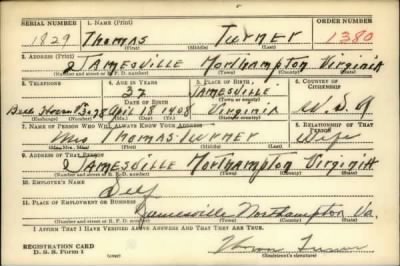 SERIAL NUMBER 1. NAME (Print) ORDER NUMBER
1829 Thomas Turner 1380
(First) (Middle) (Last)
2. ADDRESS (Print)
Jamesville Northhampton Virginia
(Number and street or R. F. D. number) (Town) (County) (State)
3. TELEPHONE 4. AGE IN YEARS 5. PLACE OF BIRTH 6. COUNTRY OF CITIZENSHIP
32 Jamesville
DATE OF BIRTH (Town or county)
April 18 1908 Virginia U. S. A
(Exchange) (Number) (Mo.) (Day) (Yr.) (State or country)
7. NAME OF PERSON WHO WILL ALWAYS KNOW YOUR ADDRESS 8. RELATIONSHIP OF THAT PERSON
Mrs Thomas Turner Wife
(Mr., Mrs., Miss) (First) (Middle) (Last)
9. ADDRESS OF THAT PERSON
Jamesville Northhampton Virginia
(Number and street or R. F. D. number) (Town) (County) (State)
10. EMPLOYER'S NAME
Self
11. PLACE OF EMPLOYMENT OR BUSINESS
Jamesville Northhampton Va.
(Number and street or R. F. D. number) (Town) (County) (State)
I AFFIRM THAT I HAVE VERIFIED ABOVE ANSWERS AND THAT THEY ARE TRUE.
REGISTRATION CARD
D. S. S. Form 1 (Registrant's signature)